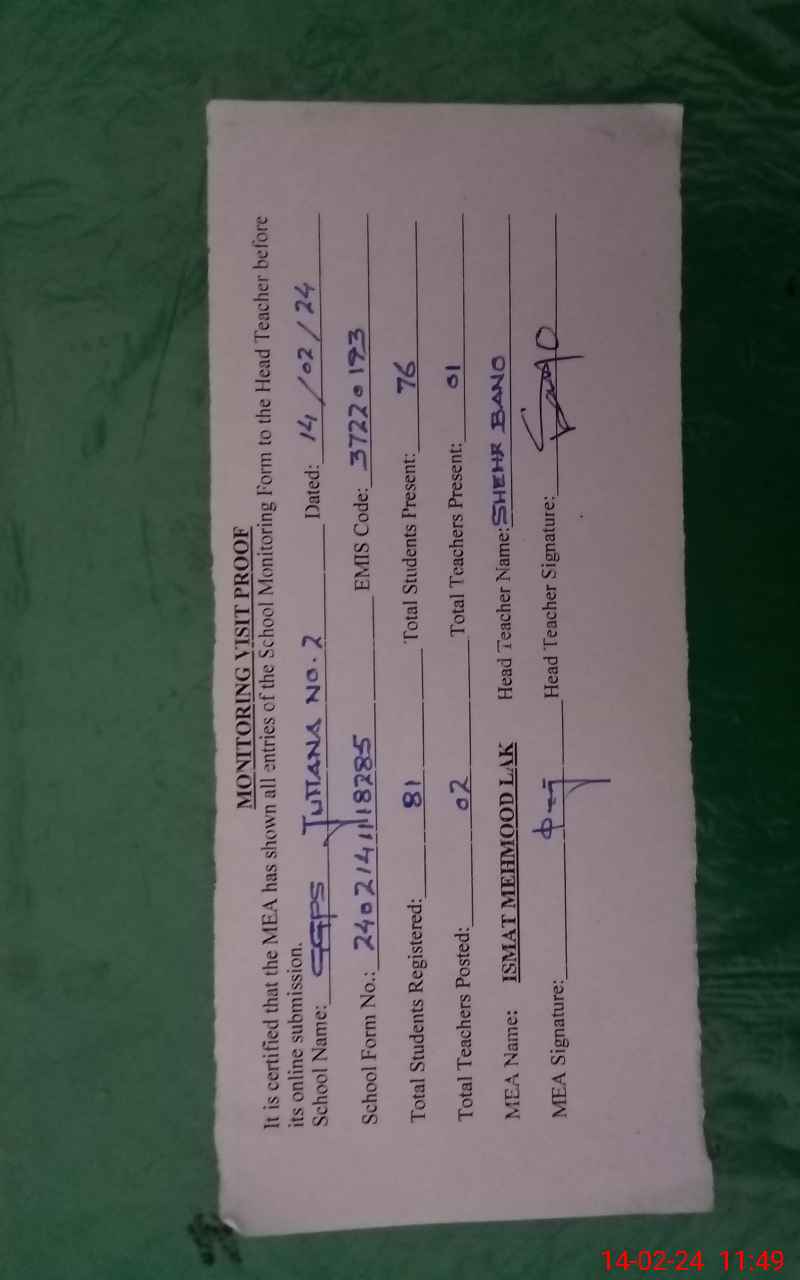 MONITORING VISIT PROOF
It is certified that the MEA has shown all entries of the School Monitoring Form to the Head Teacher before
its online submission.
School Name: GGPS JUTTANA NO.2 Dated: 14/02/24
School Form No.: 24021411118285 EMIS Code: 37220193
Total Students Registered: 81 Total Students Present: 76
Total Teachers Posted: 02 Total Teachers Present: 01
MEA Name: ISMAT MEHMOOD LAK Head Teacher Name: SHEHR BANO
MEA Signature: Head Teacher Signature:
14-02-24 11:49